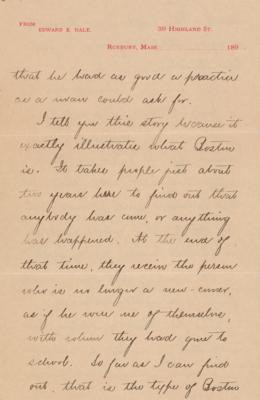 FROM
EDWARD E. HALE.
39 HIGHLAND ST.
ROXBURY, MASS. 189
that he had as good a practice
as a man could ask for.
I tell you this story because it
exactly illustrates what Boston
is. It takes people just about
two years here to find out that
anybody has come, or anything
has happened. At the end of
that time, they receive the person
who is no longer a new-comer,
as if he were one of themselves,
with whom they had gone to
school. So far as I can find
out, that is the type of Boston